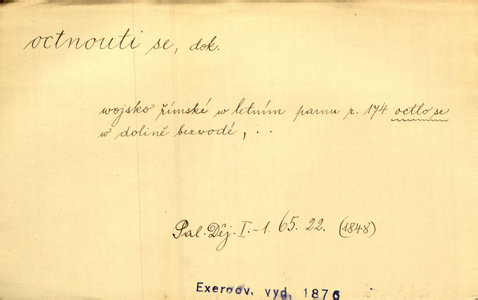 octnouti se, dok.
wojsko římské w letním parnu r. 174 octlo se
w dolině bezwodé, . .
Pal. Děj. I.-1. 65. 22. (1848)
Exercov. vyd. 1876